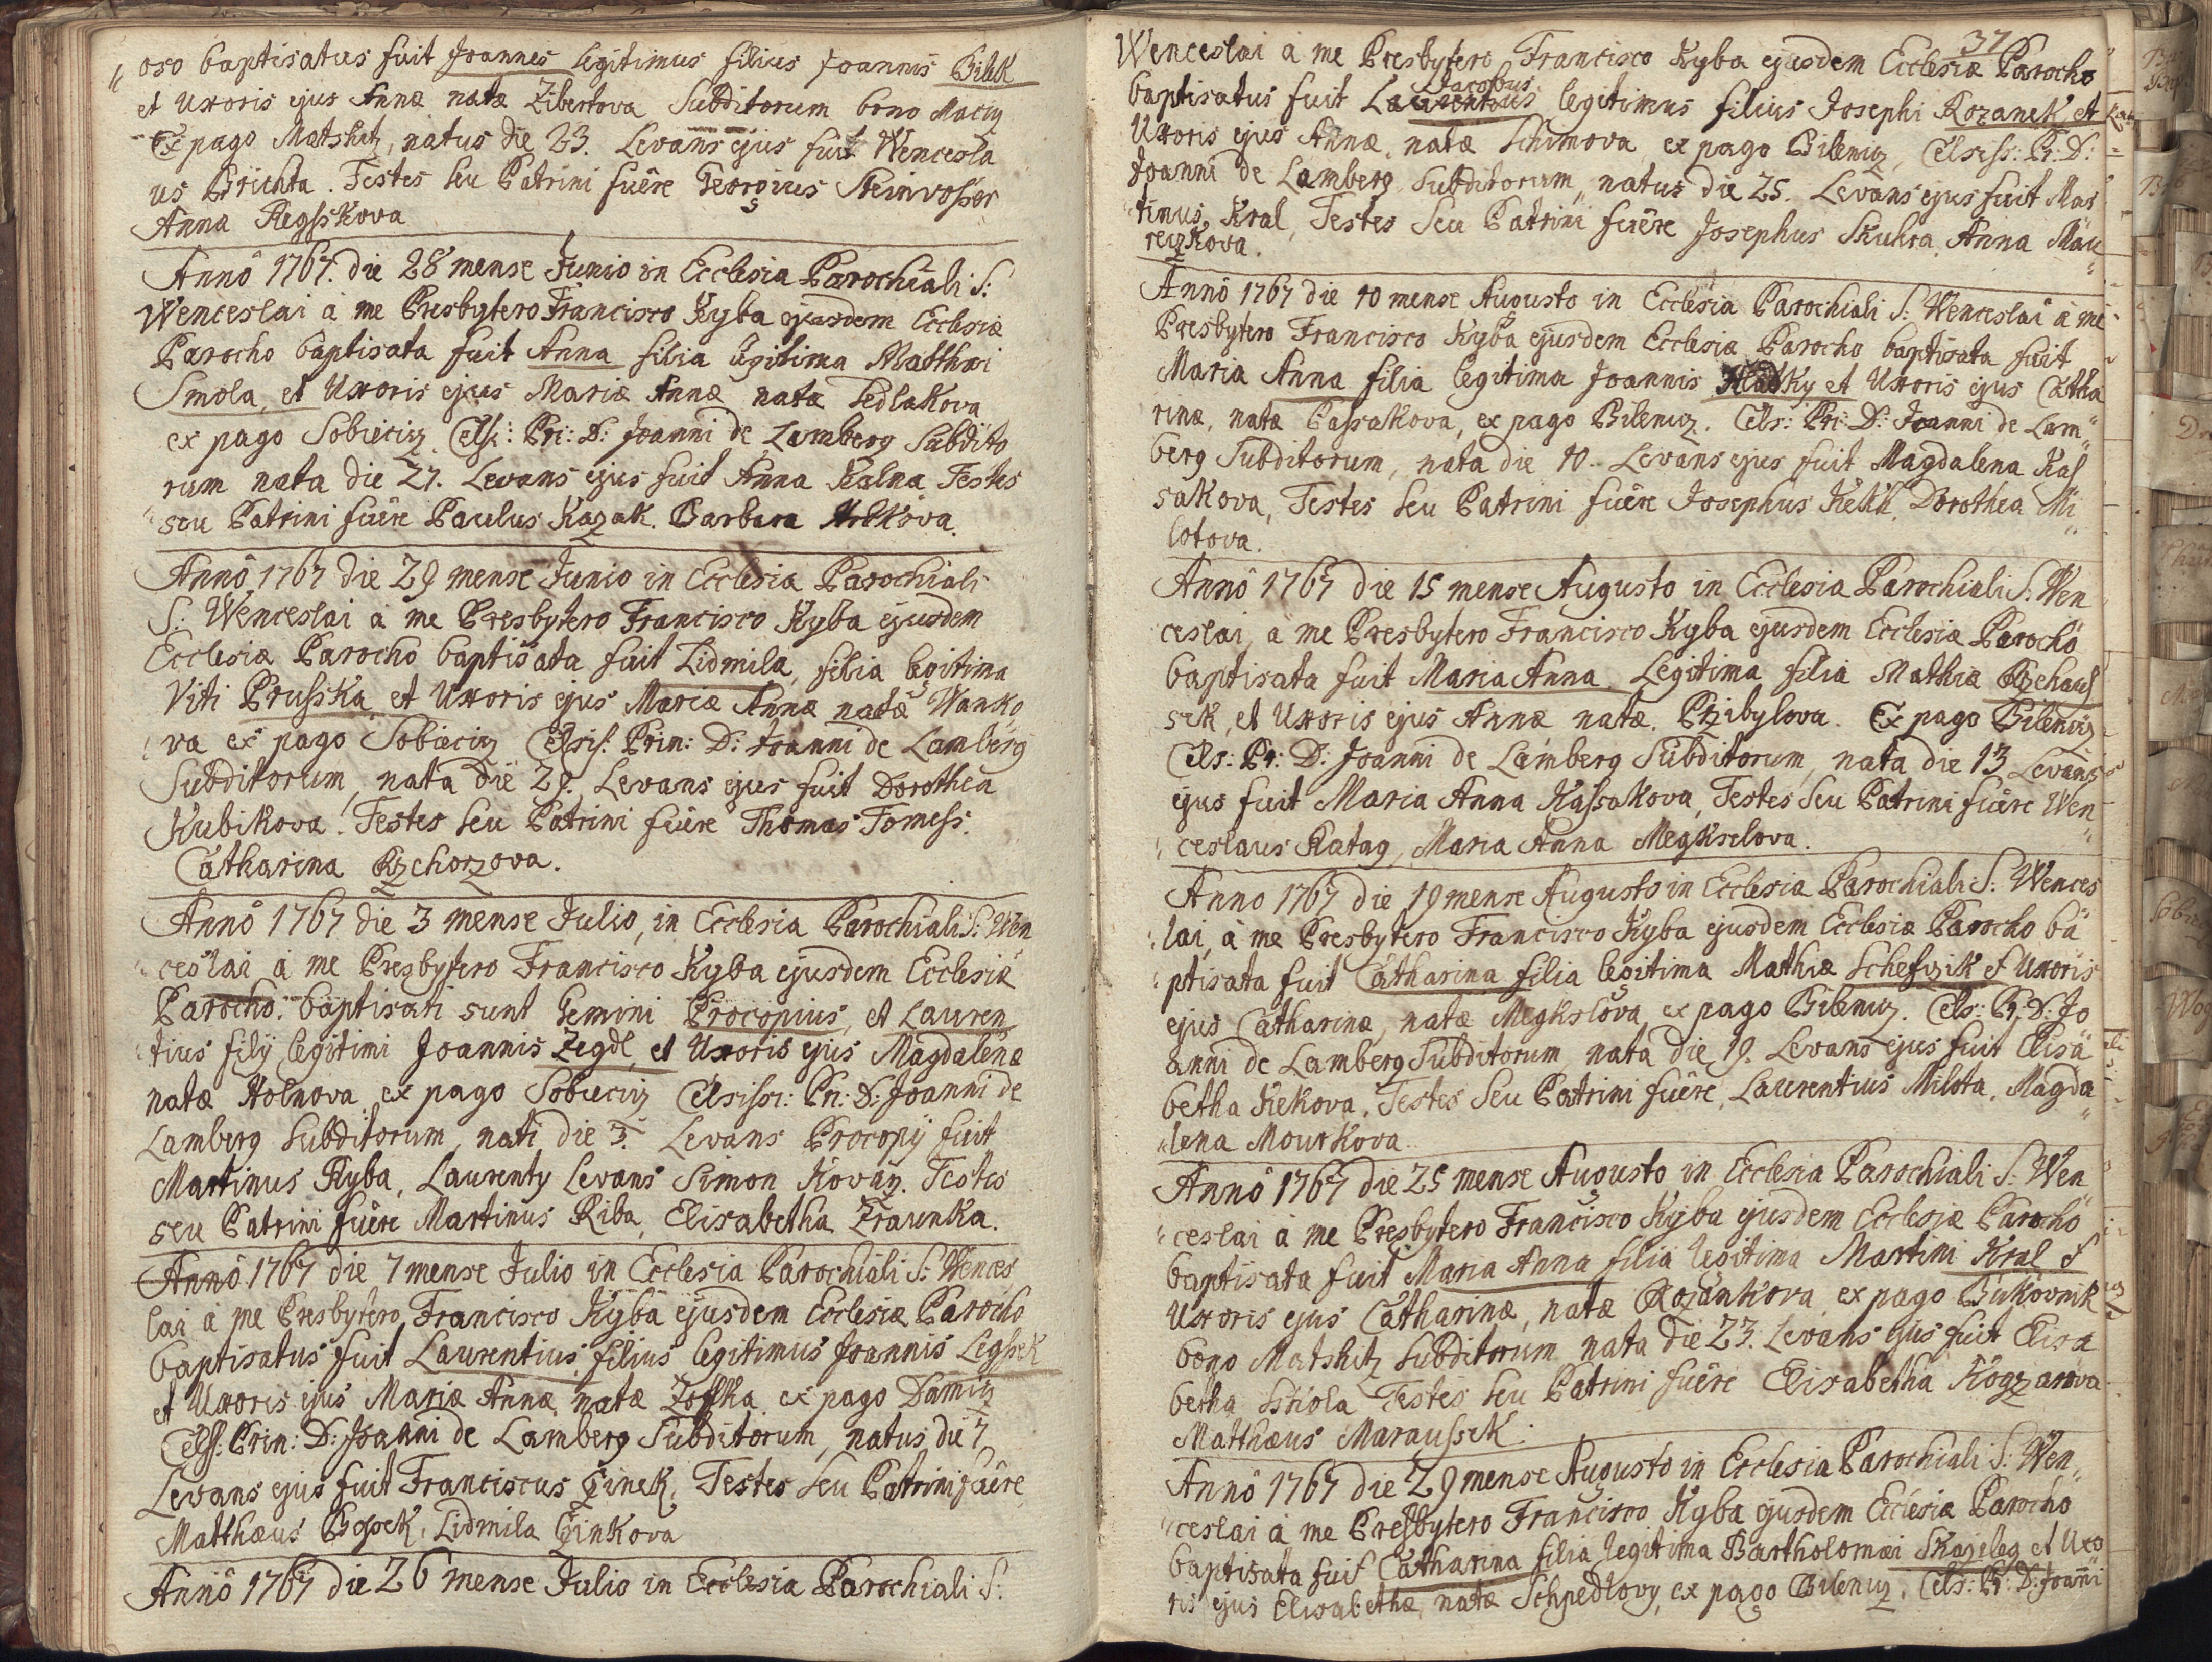 oso baptisatus fuit Joannes legitimus filius Joannis Bilek
et Uxoris ejus Annæ natæ Zibertova Subditorum bono Maciy
Ex pago Matshitz, natus die 23. Levans ejus fuit Wencesla
us Brichta. Testes seu Patrini fuêre Georgius Steinvosser
Anna Regsskova
Annô 1767. die 28 mense Junio in Ecclesia Parochiali S:
Wenceslai à me Presbytero Francisco Ryba ejusdem Ecclesiæ
Parocho baptisata fuit Anna filia legitima Matthæi
Smola, et Uxoris ejus Mariæ Annæ natæ Sedlakova
ex pago Sobieciz Celsi: Pri: D: Joanni de Lamberg Subdito
rum nata die 27. Levans ejus fuit Anna Kalna Testes
seu Patrini fuêre Paulus Kazak. Barbara
Annô 1767 die 29 mense Junio in Ecclesia Parochiali
S: Wenceslai à me Presbytero Francisco Ryba ejusdem
Ecclesiæ Parochô baptisata fuit Lidmila, filia legitima
Viti Prusska et Uxoris ejus Mariæ Annæ natæ Wanko
va ex pago Sobieciz Celsis: Prin: D: Joanni de Lamberg
Subditorum, nata die 29. Levans ejus fuit Dorothea
Kubikova. Testes seu Patrini fuêre Thomas Tomess.
Catharina Rzehorzova.
Annô 1767 die 3 mense Julio, in Ecclesia Parochiali S: Wen
ceslai à me Presbytero Francisco Ryba ejusdem Ecclesiæ
Parocho. baptisati sunt Gemini Procopius, et Lauren
tius filÿ legitimi Joannis Zegdl, et Uxoris ejus Magdalenæ
natæ Holnova ex pago Sobieciz Celsiss: Pri: D: Joanni de
Lamberg Subditorum, nati die 3. Levans Procopÿ fuit
Martinus Ryba, Laurenty Levans Simon Kovarz. Testes
seu Patrini fuêre Martinus Riba, Elisabetha Zraunka.
Annô 1767 die 7 mense Julio in Ecclesia Parochiali S: Wences
lai à me Presbytero Francisco Ryba ejusdem Ecclesiæ Parocho
baptisatus fuit Laurentius filius legitimus Joannis Legssek
et Uxoris ejus Mariæ Annæ natæ Zoffka ex pago Damiz
Cels: Prin: D: Joanni de Lamberg Subditorum, natus die 7
Levans ejus fuit Franciscus Czinek. Testes seu Patrini fuêre
Matthæus Lidmila Czinkova
Annô 1767 die 26 mense Julio in Ecclesia Parochiali S:
37
Wenceslai à me Presbytero Francisco Ryba ejusdem Ecclesiæ Parocho
Jacobus
baptisatus fuit Laurentius legitimus filius Josephi Rozanek, et
Uxoris ejus Annæ, natæ Schimova ex pago Bileniz, Celsiss: Pr: D:
Joanni de Lamberg Subditorum, natus die 25. Levans ejus fuit Mar
tinus Kral, Testes seu Patrini fuêre Josephus Skuhra, Anna Mau
reczkova.
Annô 1767 die 10 mense Augusto in Ecclesia Parochiali S: Wenceslai à me
Presbytero Francisco Ryba ejusdem Ecclesiæ Parocho baptisata fuit
Maria Anna filia legitima Joannis Hladky et Uxoris ejus Catha
rinæ, natæ Cassakova, ex pago Bileniz. Cels: Pri: D: Joanni de Lam
berg Subditorum, nata die 10. Levans ejus fuit Magdalena Kas
sakova, Testes seu Patrini fuêre Josephus Dorothea Mi
lotova.
Annô 1767 die 15 mense Augusto in Ecclesia Parochiali S: Wen
ceslai, à me Presbytero Francisco Ryba ejusdem Ecclesiæ Parochô
baptisata fuit Maria Anna. Legitima filia Mathiæ Rzehaus
sek, et Uxoris ejus Annæ natæ. Przibylova. Ex pago Bileniz
Cels: Pr: D: Joanni de Lamberg Subditorum, nata die 13 Levans
ejus fuit Maria Anna Kassakova, Testes seu Patrini fuêre Wen
ceslaus Ratag, Maria Anna Megkselova.
Anno 1767 die 19 mense Augusto in Ecclesia Parochiali S: Wences
lai, à me Presbytero Francisco Ryba ejusdem Ecclesiæ Parocho ba
ptisata fuit Catharina filia legitima Mathiæ Schefzik et Uxoris
ejus Catharinæ, natæ Megkslova ex pago Bileniz. Cels: Pr. D: Jo
anni de Lamberg Subditorum nata die 19. Levans ejus fuit Elisa
betha Kekova. Testes seu Patrini fuêre, Laurentius Milota, Magda
lena Mourkova
Annô 1767 die 25 mense Augusto in Ecclesia Parochiali S: Wen
ceslai à me Presbytero Francisco Ryba ejusdem Ecclesiæ Parochô
baptisata fuit Maria Anna filia legitima Martini Kral et
Uxoris ejus Catharinæ, natæ Rozankova ex pago Bukovnik
bono Matshitz Subditorum nata die 23. Levans ejus fuit Elisa
betha Testes seu Patrini fuêre Elisabetha Kogzarova
Matthæus Maraussek.
Annô 1767 die 29 mense Augusto in Ecclesia Parochiali S: Wen
ceslai à me Presbytero Francisco Ryba ejusdem Ecclesia Parocho
baptisata fuit Catharina filia legitima Bartholomæi Skazileg et Uxo
ris ejus Elisabethæ, natæ Schpedlovy, ex pago Bileniz. Cels: Pr: D: Joanni